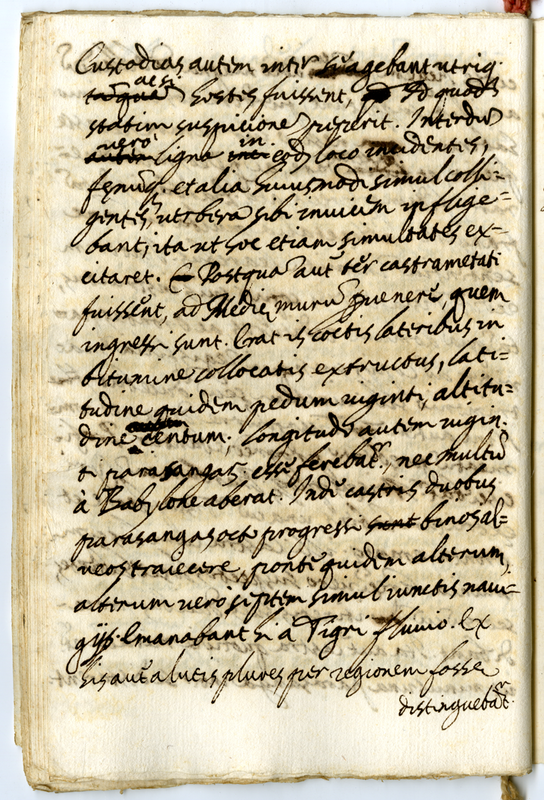 Custodias autem inter se agebant utriq.
ac si hostes fuissent, Id quod
statim suspicionē peperit. Interdū
vero ligna in eodē loco incidentes,
fęnumq. et alia huiusmodi simul colli-
gentes, verbera sibi inviicem inflige=
bant, ita ut hoc etiam simultates ex-
citaret. Postquā aut ter castrametati
fuissent, ad Medię murū pvenere, quem
ingressi sunt. Erat is coctis lateribus in
bitumine collocatis extructus, lati=
tudine quidem pedum viginti, altitu=
dine centum; longitudo autem vigin.
ti parasangas esse ferebat.r, nec multū
à Babylone aberat. Inde castris duobus
parasangas octo progressi binos al=
veos traiecere, ponte quidem alterum,
alterum vero septem simul iunctis navi=
gijs. Emanabant hi à Tigri fluvio. Ex
his aut alveis plures per regionem fossę
distinguebāt.r